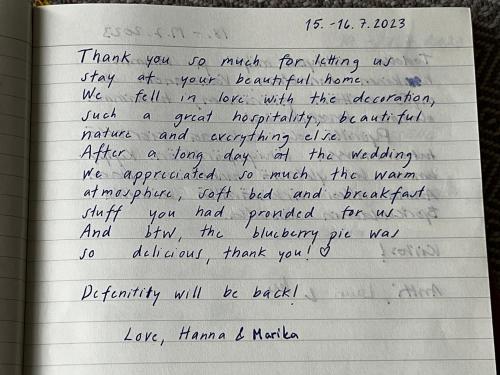 15.-16.7.2023
Thank you so much for letting us
stay at your beautiful home.
We fell in love with the decoration,
such a great hospitality, beautiful
nature and everything else.
After a long day at the wedding
we appreciated so much the warm
atmosphere, soft bed and breakfast
stuff you had pronided for us.
And btw, the blueberry pie was
so delicious, thank you! ♡
Defenitily will be back!
Love, Hanna & Marika